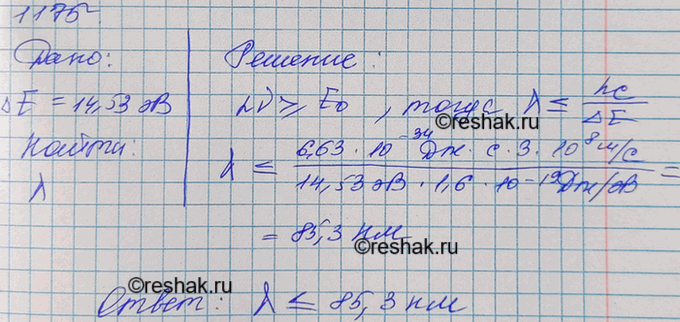 1175
Дано:
ΔE = 14,53 эВ
Найти:
λ
Решение:
hν ≥ E₀, тогда λ ≤ hc / ΔE
©reshak.ru
λ ≤ 6,63 · 10⁻³⁴ Дж · с · 3 · 10⁸ м/с / 14,53 эВ · 1,6 · 10⁻¹⁹ Дж/эВ =
= 85,3 нм
©reshak.ru
©reshak.ru
Ответ: λ ≤ 85,3 нм